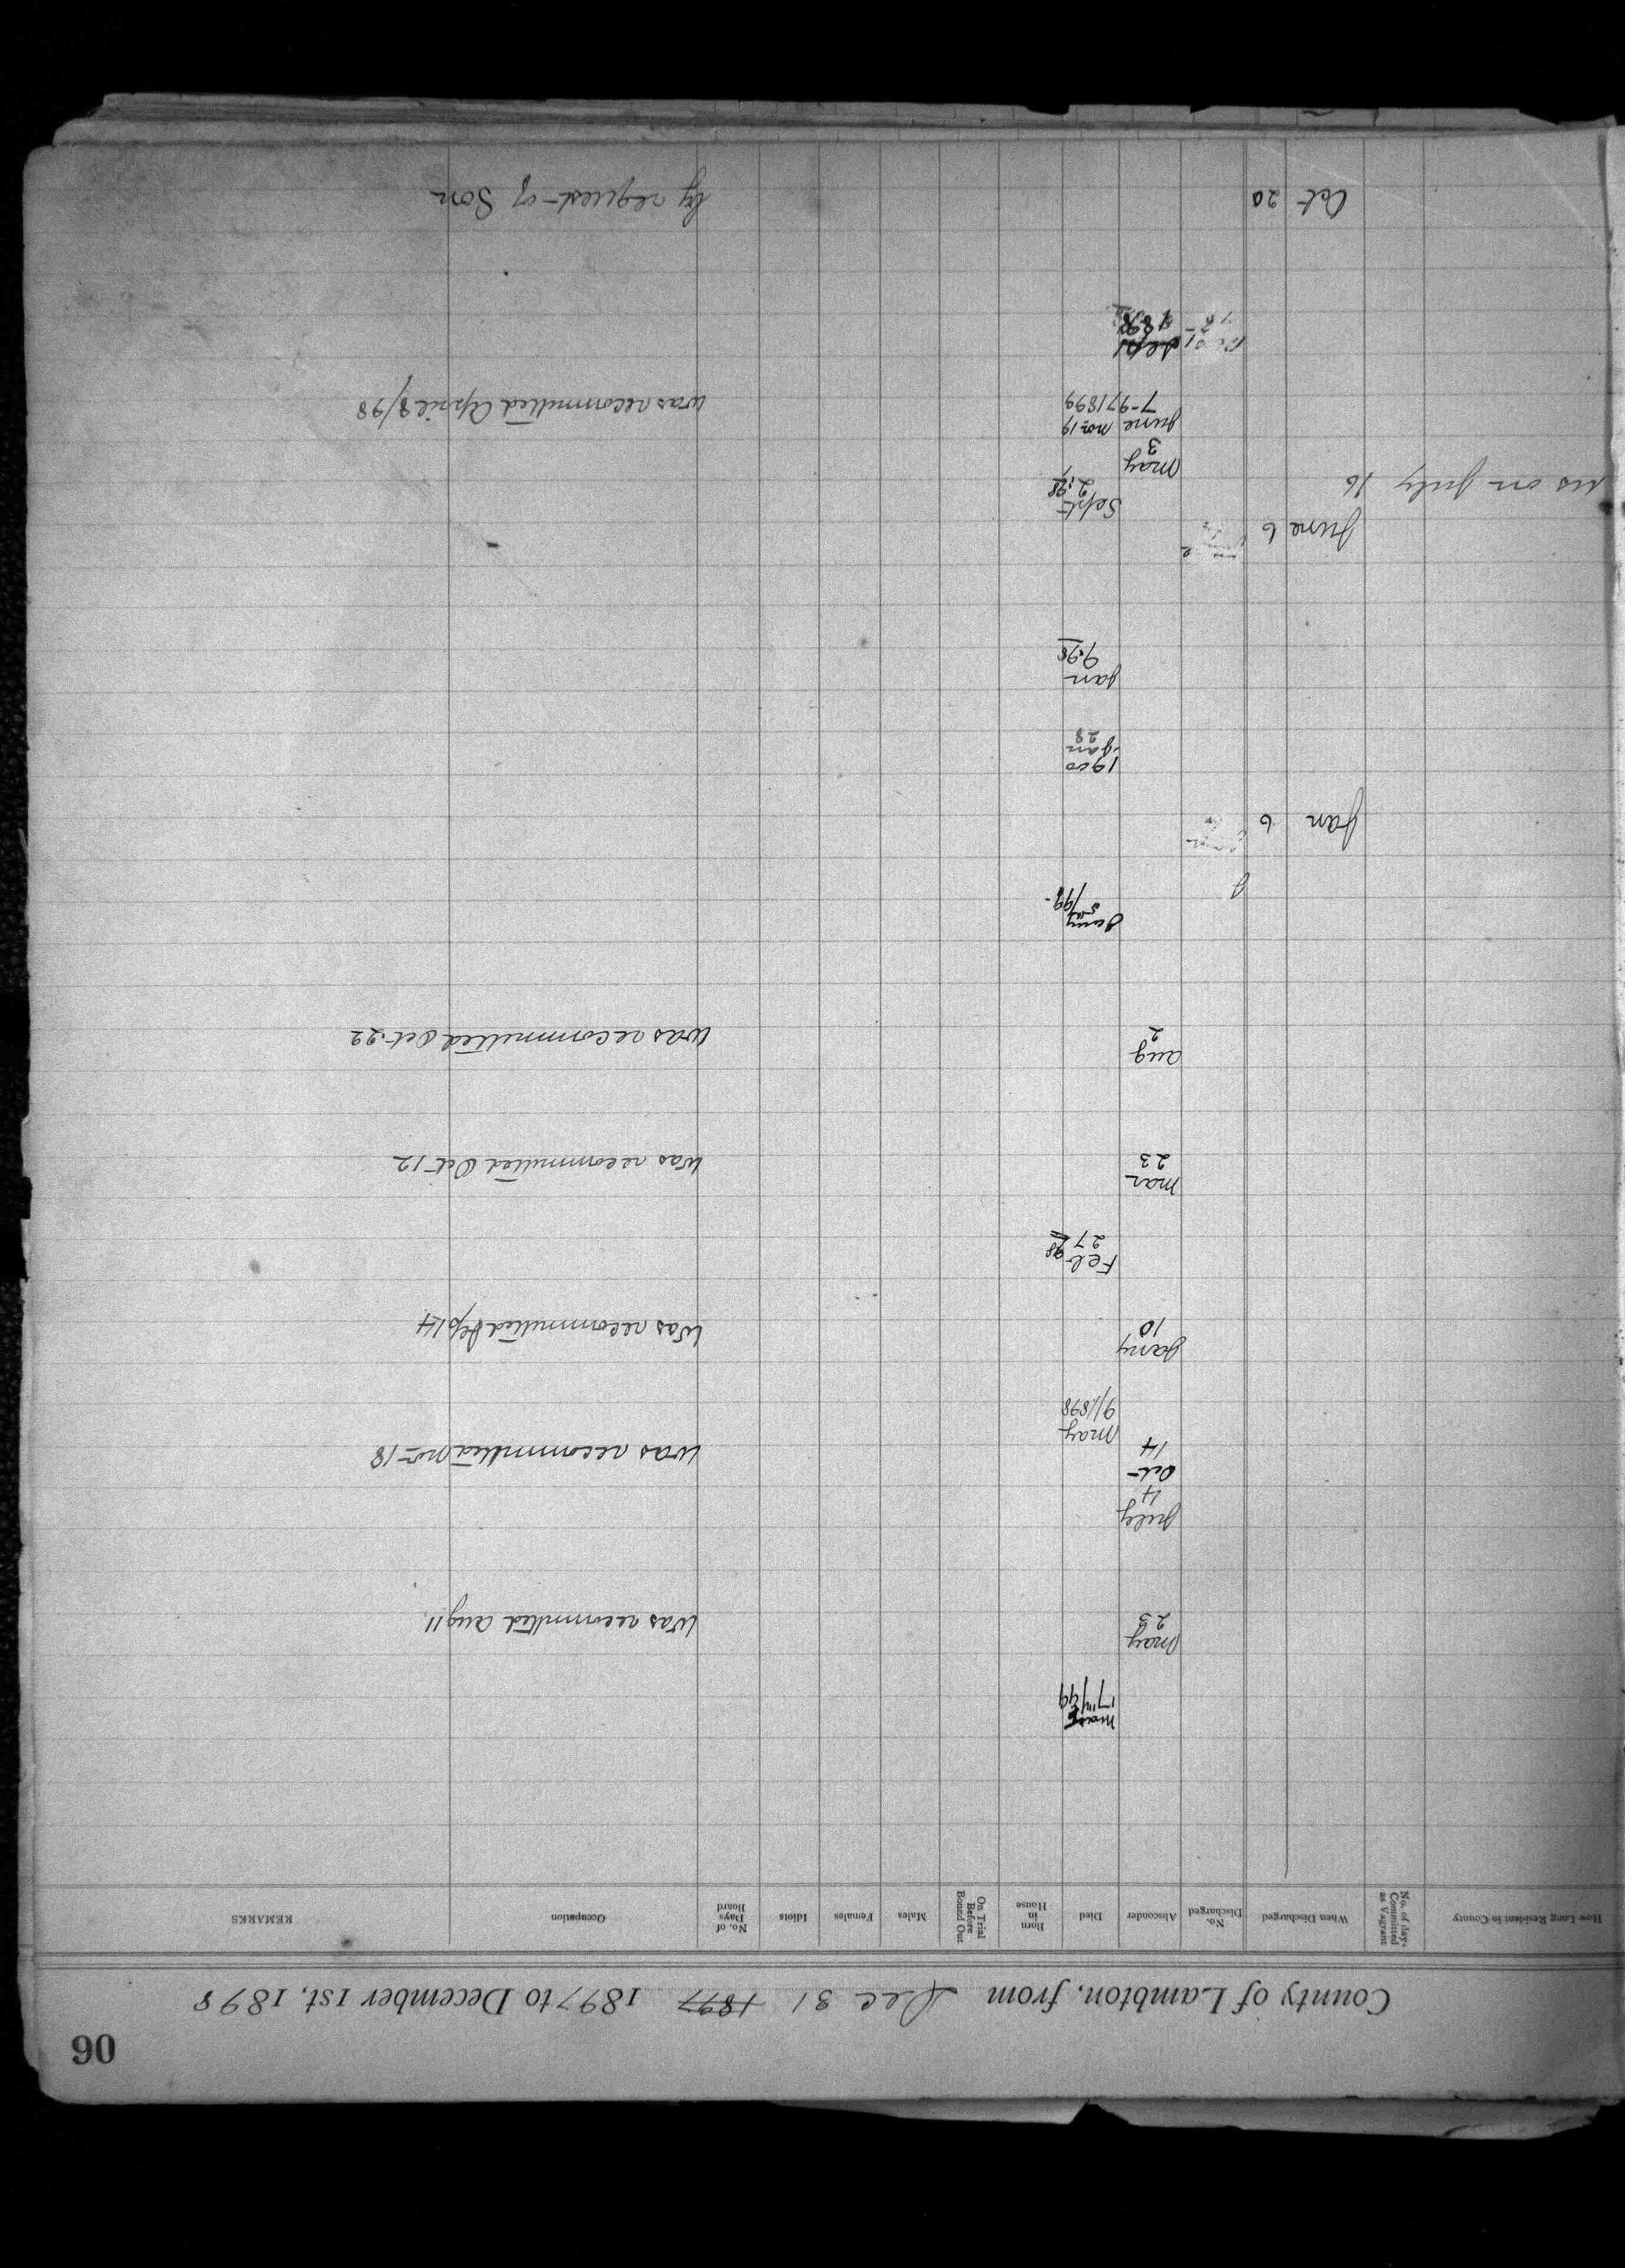 90
County of Lambton, from Dec 31 1897 1897 to December 1st, 1898
How Long Resident in County
No. of days
Committed
as Vagrant
When Discharged
No.
Discharged
Absconder
Died
Born
in
House
On Trial
Before
Bound Out
Males
Females
Idiots
No. of
Days
Board
Occupation
REMARKS
17th/99
May
23
Was recommitted Aug 11
July
4
Oct
14
Was recommitted Nov 18
May
9/1898
Jany
10
Was recommitted Sep 14
Feb
27 98
Mar
23
Was recommitted Oct 12
Aug
2
Was recommitted Oct. 22
Jany
5th/99
Jan 6
1900
Jan
28
Jan
9.98
June 6
us on July 16
Sept
2, 98
May
3
June
7-97
Nov 19
1899
Was recommitted April 8/98
Sept
1898
Oct 20
by request of Son